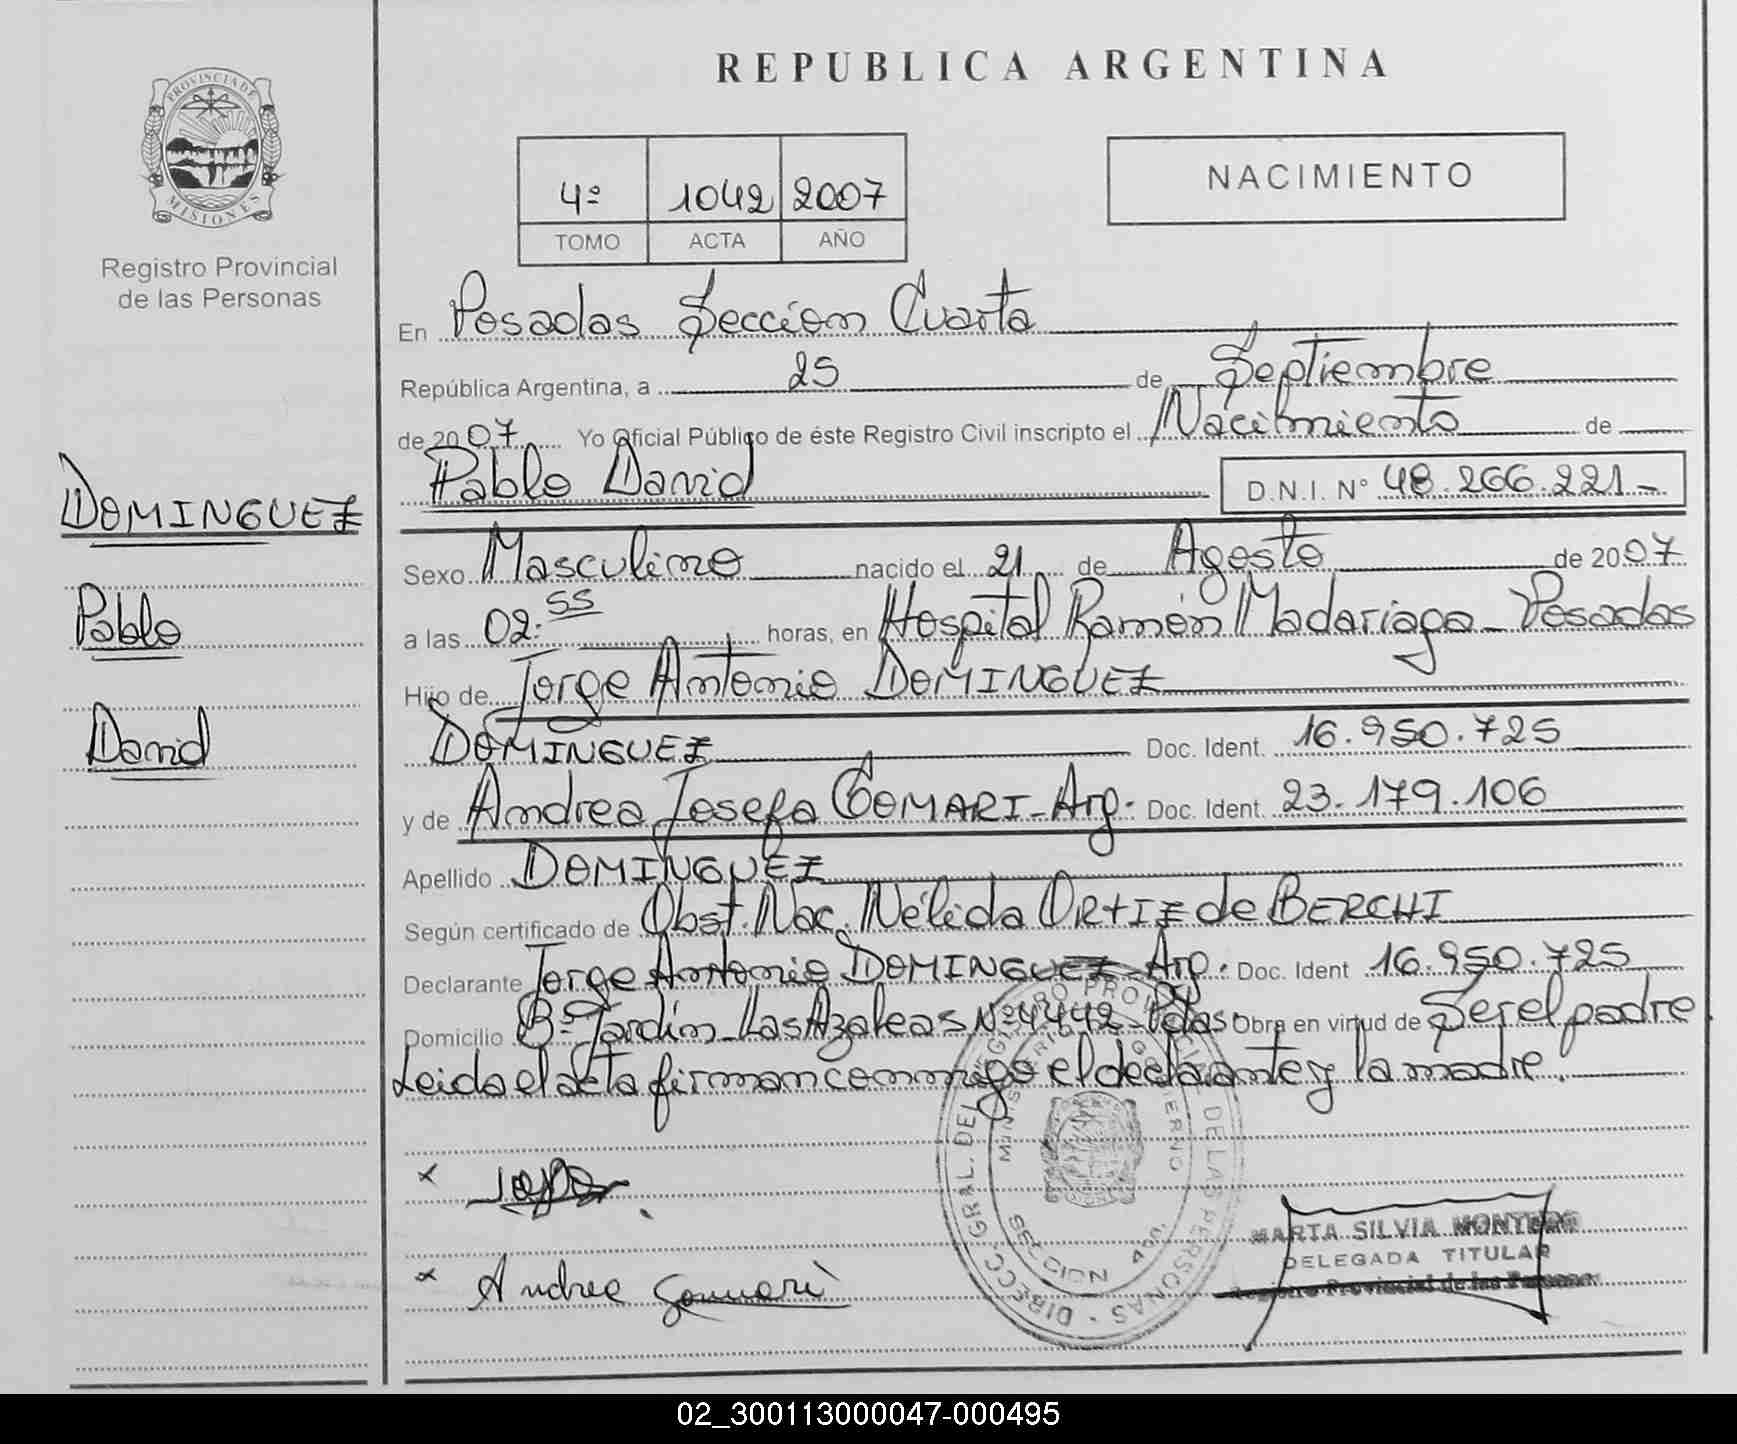 REPUBLICA ARGENTINA
PROVINCIA DE
MISIONES
Registro Provincial
de las Personas
4º 1042 2007
TOMO ACTA AÑO
NACIMIENTO
DOMINGUEZ
Pablo
David
En Posadas Sección Cuarta
República Argentina, a 25 de Septiembre
de 2007 Yo Oficial Público de éste Registro Civil inscripto el Nacimiento de
Pablo David D.N.I. Nº 48.266.221-
Sexo Masculino nacido el 21 de Agosto de 2007
a las 02:55 horas, en Hospital Ramón Madariaga - Posadas
Hijo de Jorge Antonio DOMINGUEZ
DOMINGUEZ Doc. Ident. 16.950.725
y de Andrea Josefa GOMARI - Arg. Doc. Ident. 23.179.106
Apellido DOMINGUEZ
Según certificado de Obst. Nac. Nélida ORTIZ de BERCHI
Declarante Jorge Antonio DOMINGUEZ - Arg. Doc. Ident 16.950.725
Domicilio Bº Jardín - Las Azaleas Nº 4442 - Pdas. Obra en virtud de Ser el padre.
Leida el acta firman conmigo el declarante y la madre.
x
x Andrea Gomari
DIRECC. GRAL. DEL REGISTRO PROVINCIAL DE LAS PERSONAS
MINISTERIO DE GOBIERNO
SECCION 4ta.
MARTA SILVIA MONTERO
DELEGADA TITULAR
Registro Provincial de las Personas
02_300113000047-000495